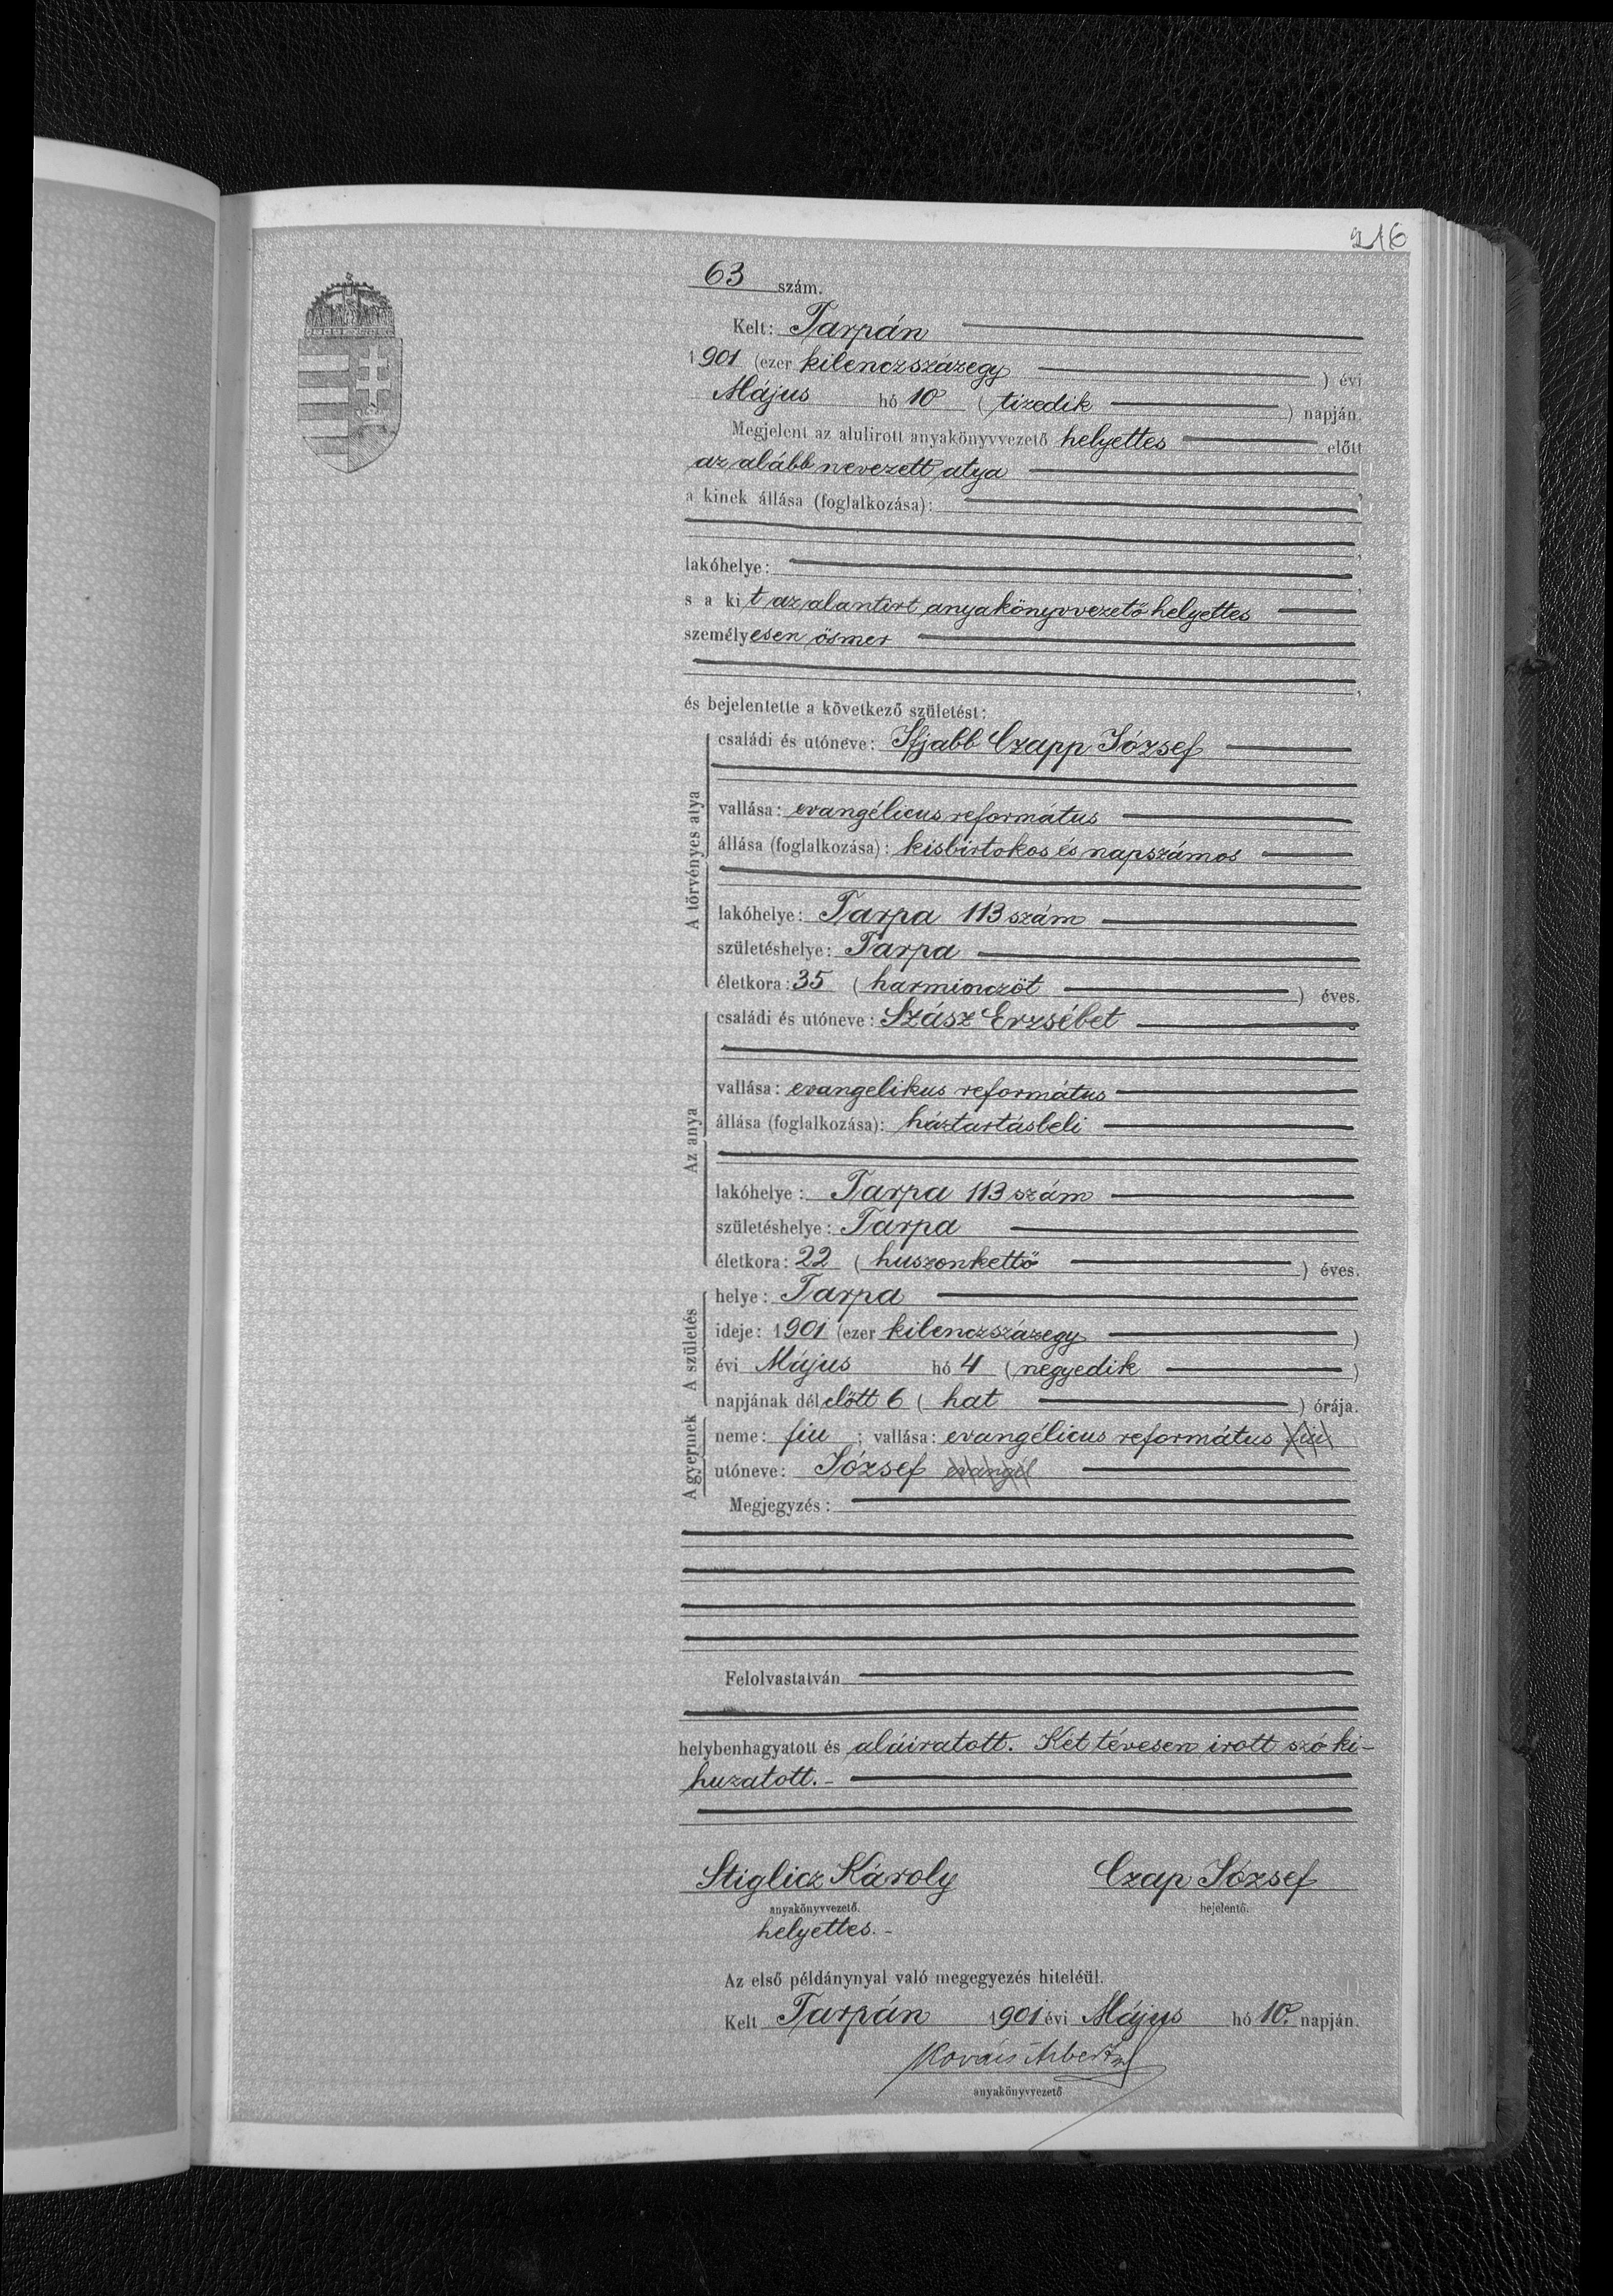 216
63 szám.
Kelt: Tarpán
1901 (ezer kilenczszázegy) évi
Május hó 10 (tizedik) napján.
Megjelent az alulirott anyakönyvvezető helyettes előtt
az alább nevezett atya,
a kinek állása (foglalkozása):
lakóhelye:
s a kit az alantirt anyakönyvvezető helyettes
személyesen ösmer,
és bejelentette a következő születést:
A törvényes atya
családi és utóneve: Ifjabb Czapp József
vallása: evangélicus református
állása (foglalkozása): kisbirtokos és napszámos
lakóhelye: Tarpa 113 szám
születéshelye: Tarpa
életkora: 35 (harminczöt) éves.
Az anya
családi és utóneve: Szász Erzsébet
vallása: evangelikus református
állása (foglalkozása): háztartásbeli
lakóhelye: Tarpa 113 szám
születéshelye: Tarpa
életkora: 22 (huszonkettő) éves.
A születés
helye: Tarpa
ideje: 1901 (ezer kilenczszázegy)
évi Május hó 4 (negyedik)
napjának délelőtt 6 (hat) órája.
A gyermek
neme: fiu; vallása: evangélicus református fiu
utóneve: József evangél
Megjegyzés:
Felolvastatván
helybenhagyatott és aláiratott. Két tévesen irott szó ki-
huzatott.-
Stiglicz Károly Czap József
anyakönyvvezető. bejelentő.
helyettes.-
Az első példánynyal való megegyezés hiteléül.
Kelt Tarpán 1901 évi Május hó 10. napján.
Kovács Albert
anyakönyvvezető